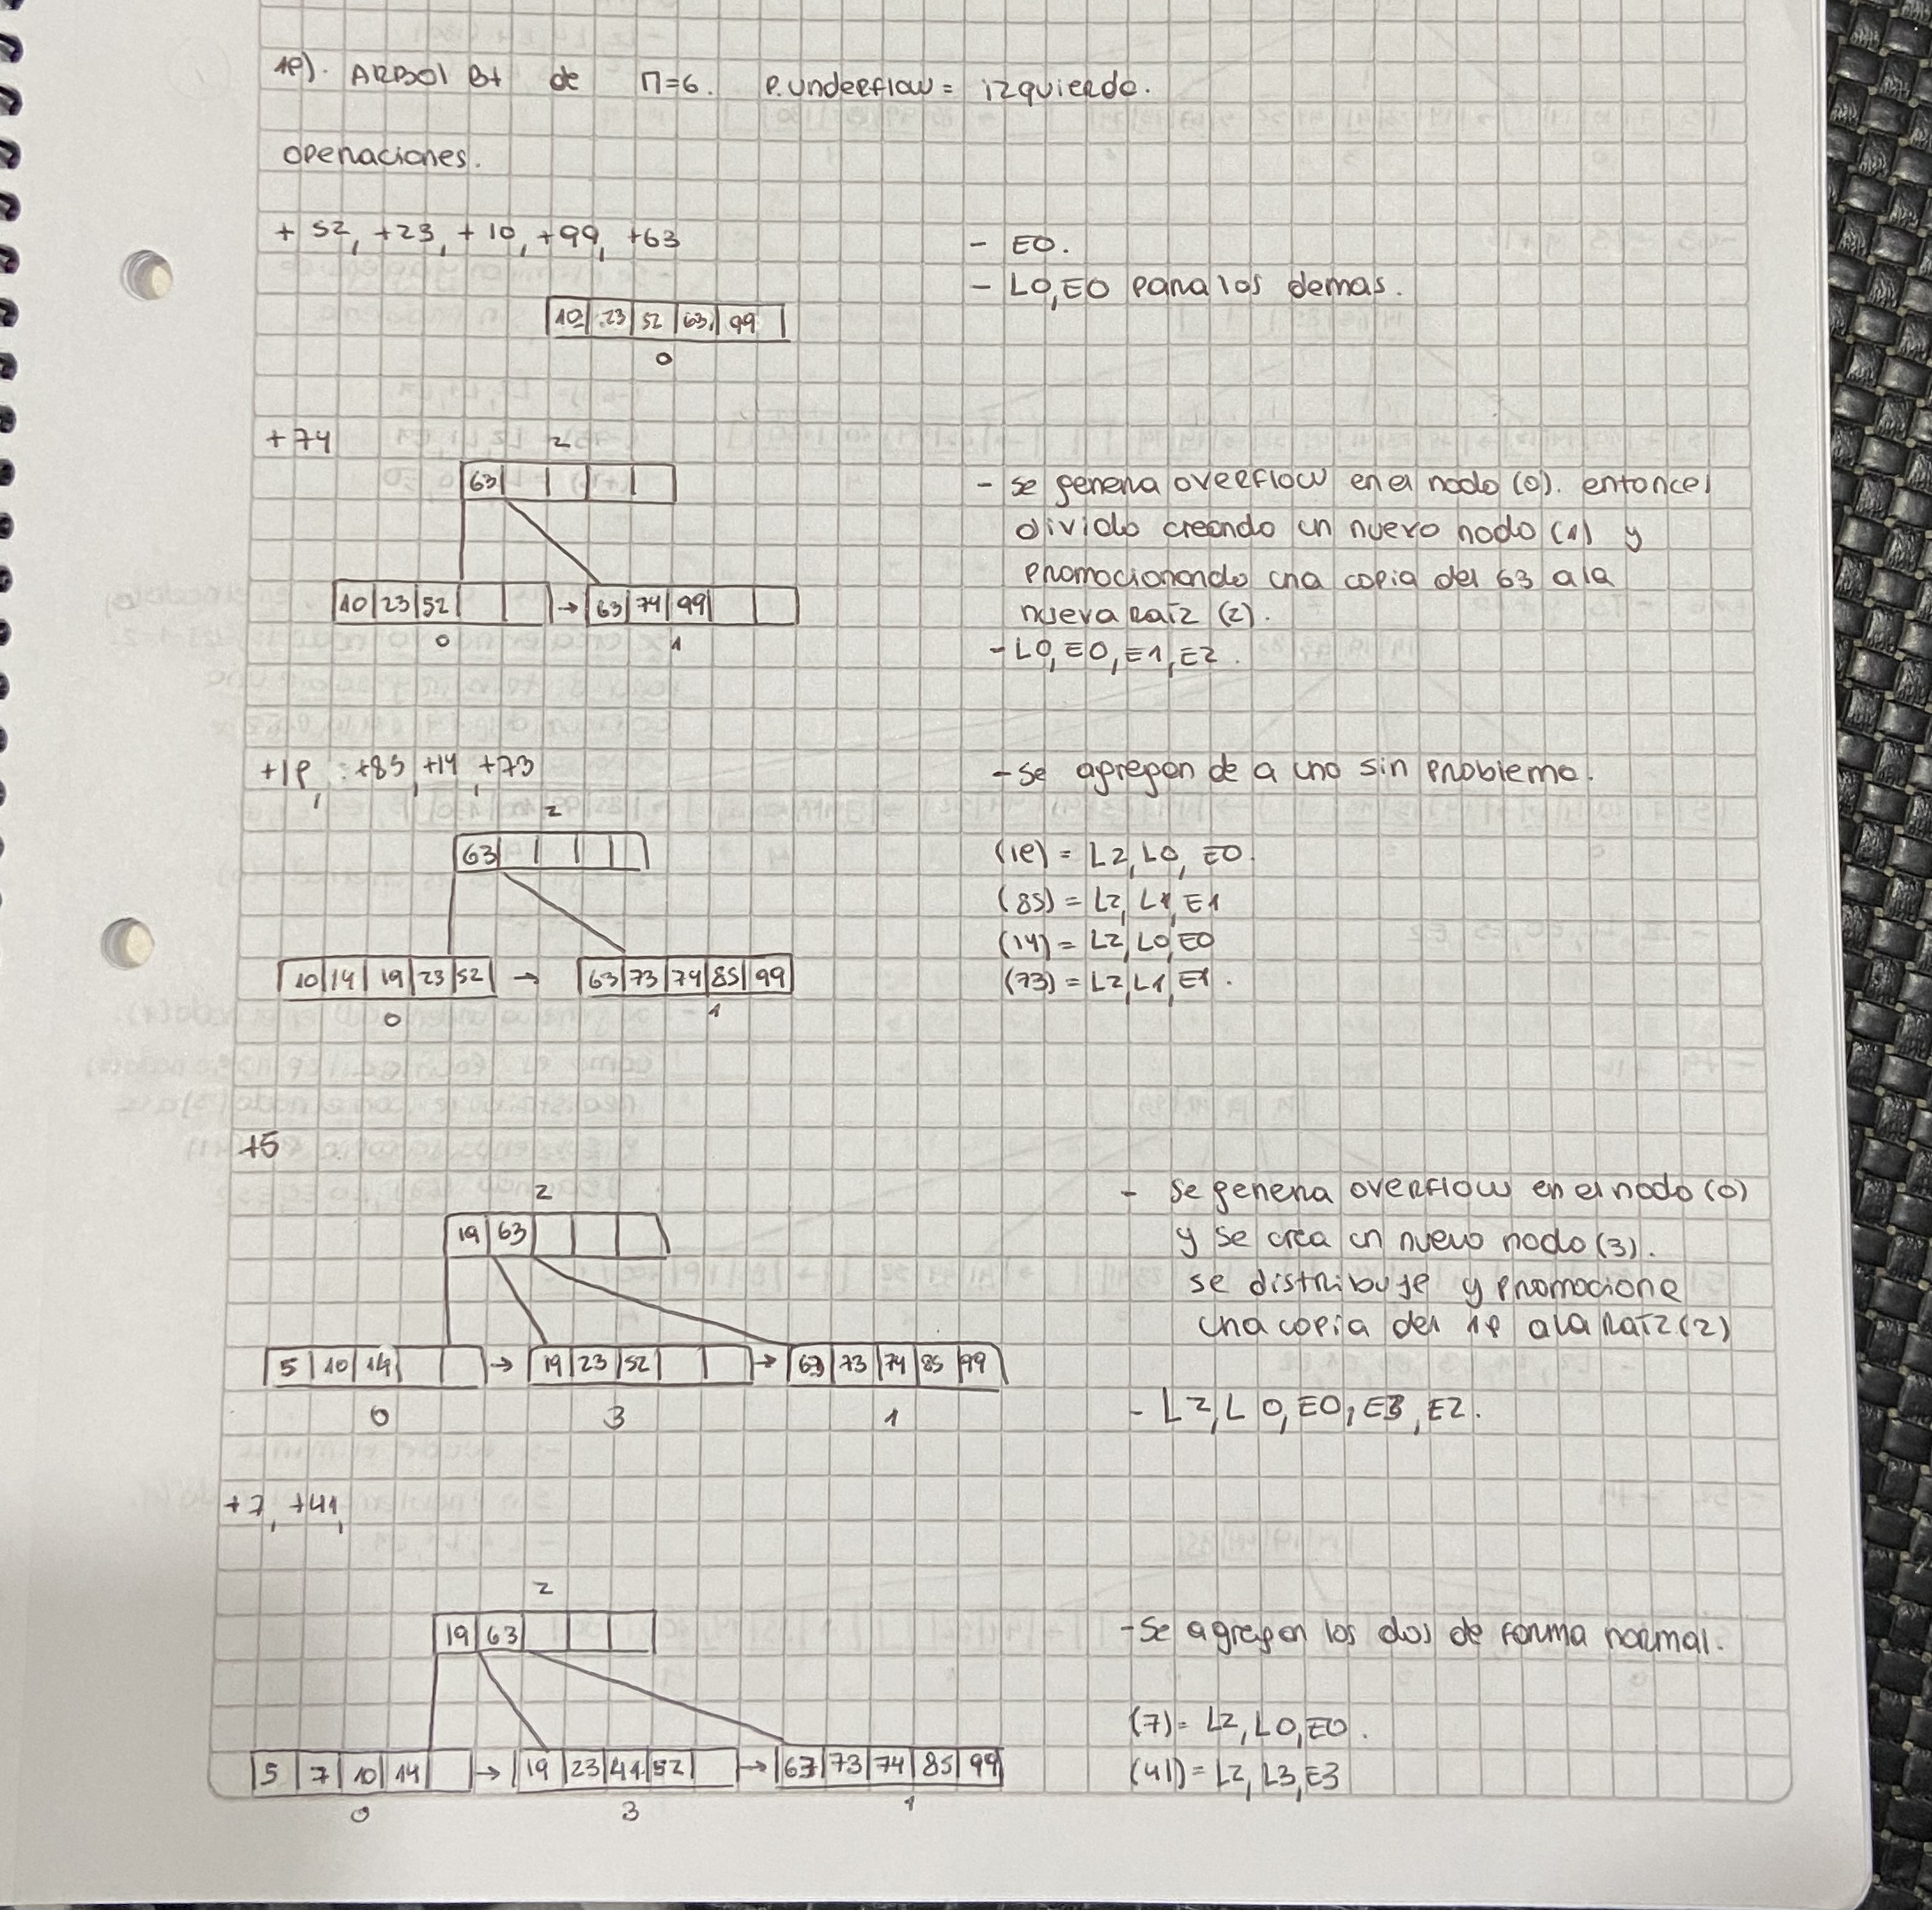 19). ARBOl B+ de M=6. P.underflow= izquierda.
operaciones.
+ 52, +23, + 10, +99, +63
- E0.
- L0,E0 para los demas.
10 23 52 63 99
0
+74
2
63
10 23 52 → 63 74 99
0 1
- se genera overflow en el nodo (0). entonces
divido creando un nuevo nodo (1) y
promocionando una copia del 63 a la
nueva raíz (2).
- L0, E0, E1, E2.
+19, +85, +14, +73
- se agregan de a uno sin problema.
2
63
10 14 19 23 52 → 63 73 74 85 99
0 1
(19) = L2, L0, E0.
(85) = L2, L1, E1
(14) = L2, L0, E0
(73) = L2, L1, E1.
+5
2
19 63
5 10 14 → 19 23 52 → 63 73 74 85 99
0 3 1
- se genera overflow en el nodo (0)
y se crea un nuevo nodo (3).
se distribuye y promociona
una copia del 19 a la raíz (2)
- L2, L0, E0, E3, E2.
+7, +41,
2
19 63
5 7 10 14 → 19 23 41 52 → 63 73 74 85 99
0 3 1
- Se agregan los dos de forma normal.
(7) = L2, L0, E0.
(41) = L2, L3, E3